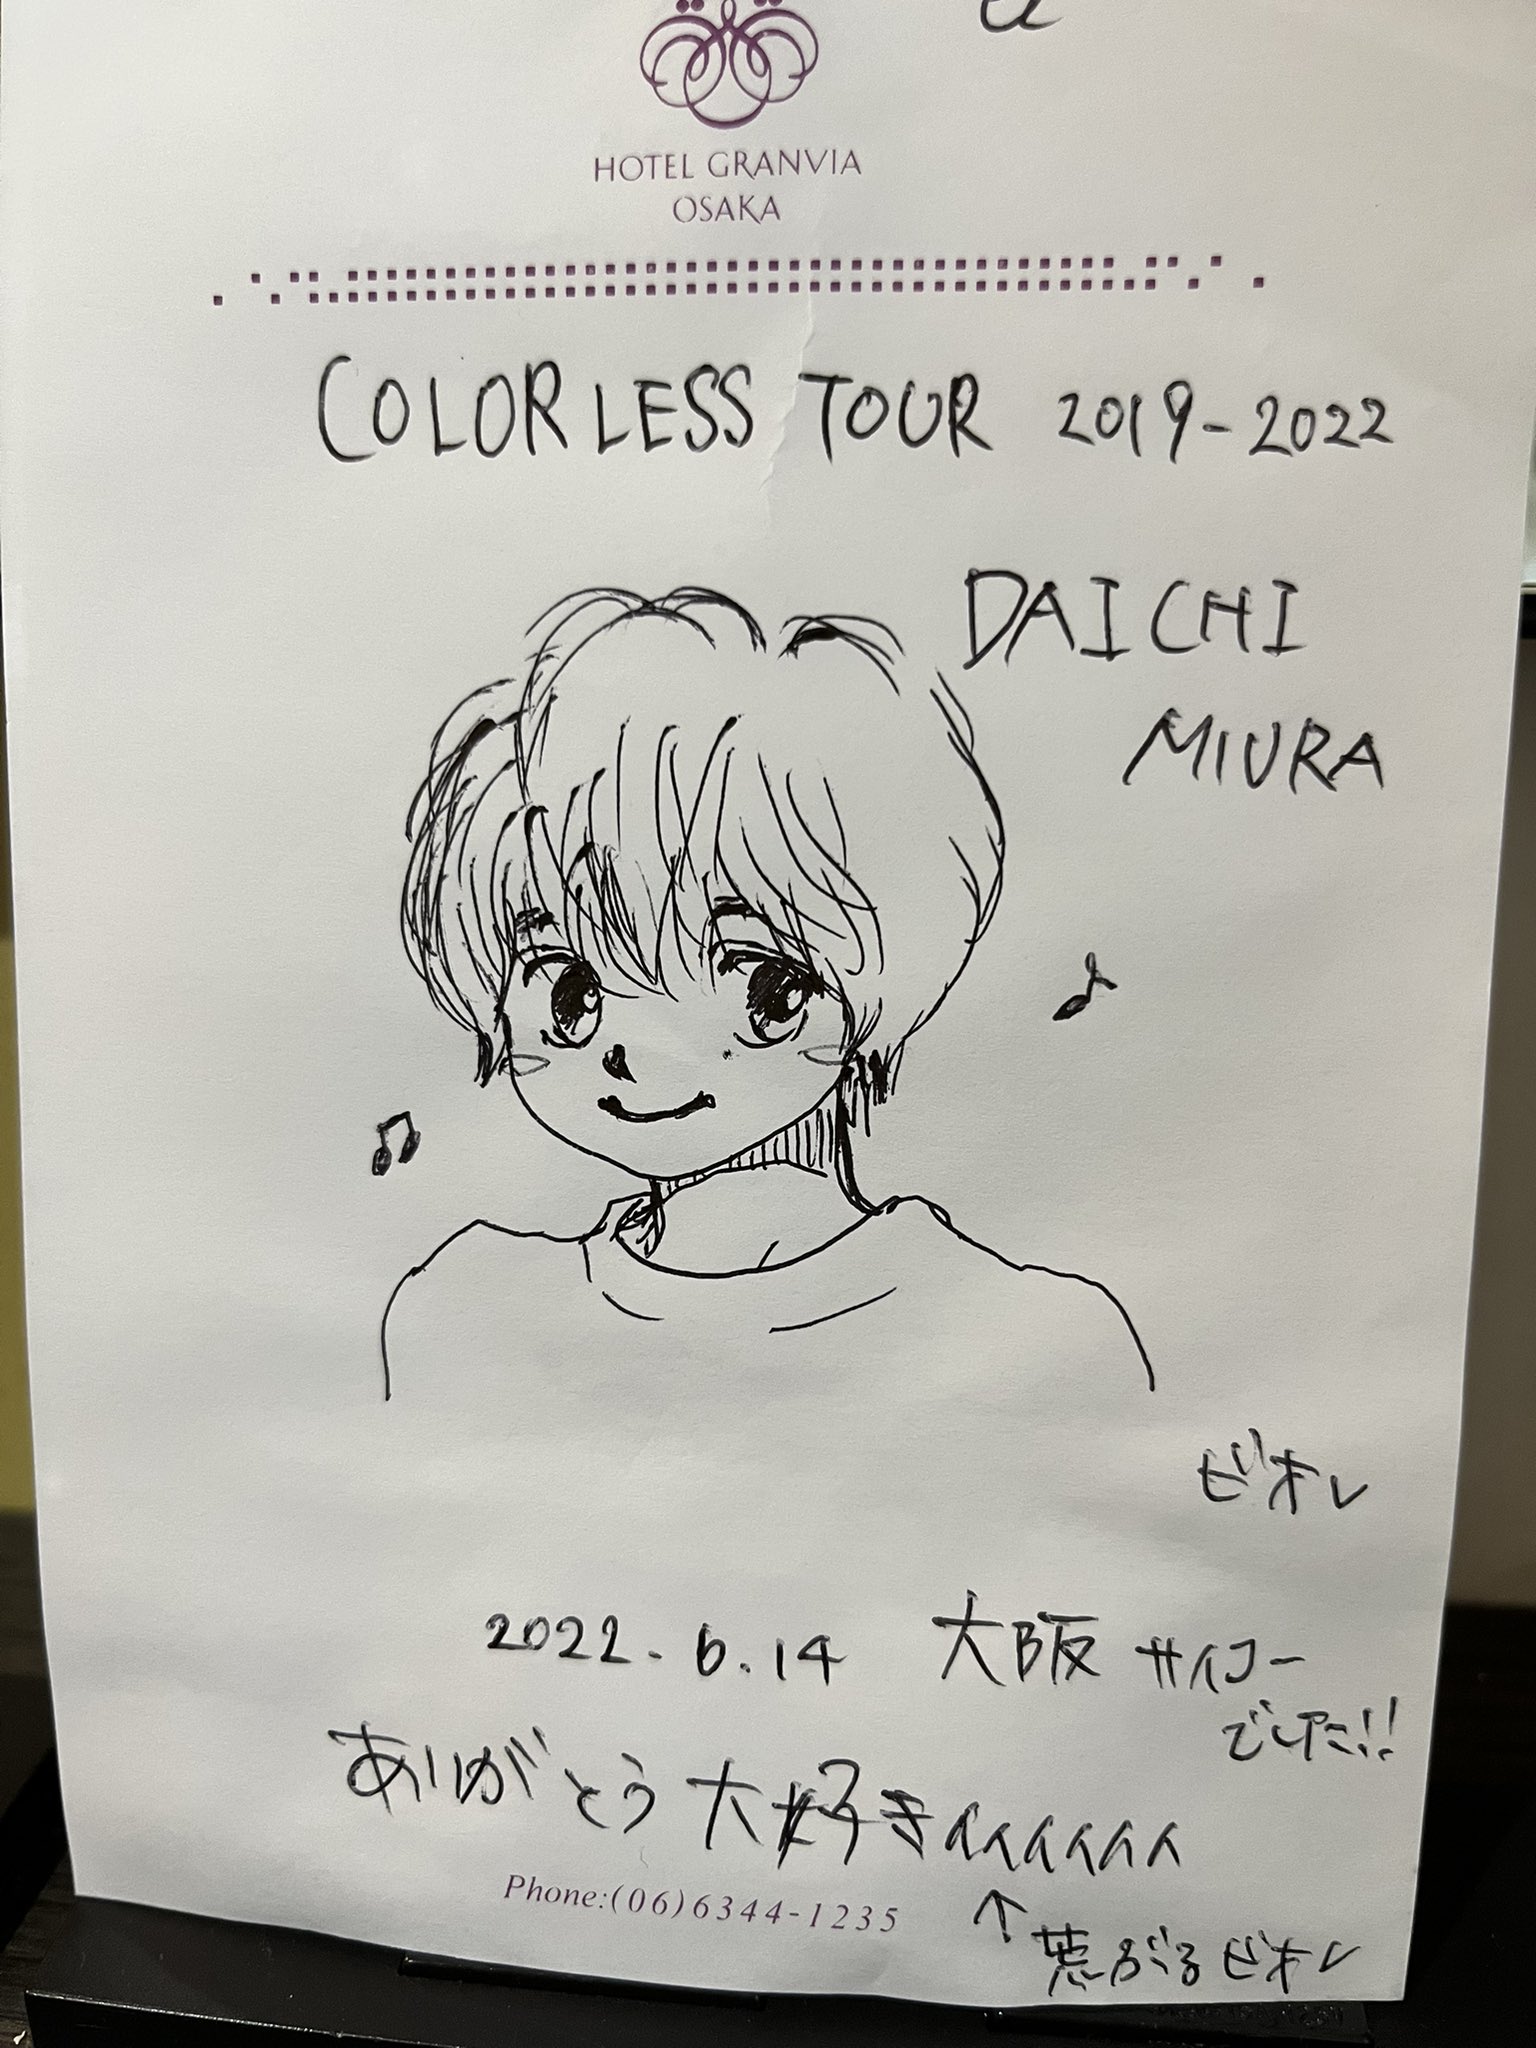 HOTEL GRANVIA
OSAKA
COLORLESS TOUR 2019-2022
DAICHI
MIURA
ビオレ
2022.6.14 大阪 サイコー
でした!!
ありがとう大好きぃぃぃぃぃぃ
Phone:(06)6344-1235
↑
荒ぶるビオレ